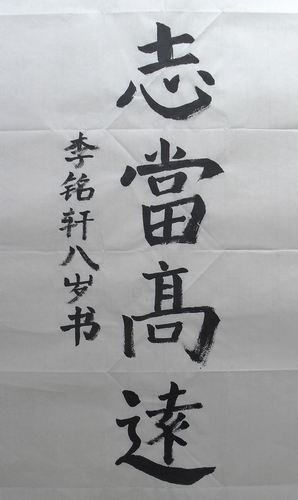 志當髙遠
李铭轩八岁书